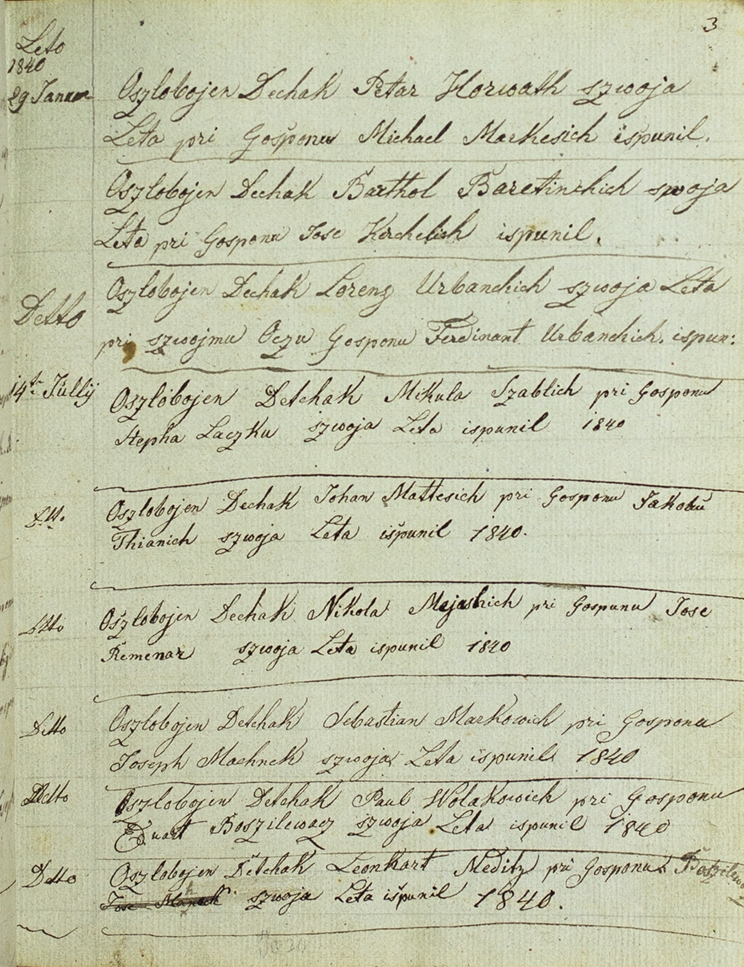 3
Leto
1840
29 Januar
Oszlobojen Dechak Petar Horwath szwoja
Leta pri Gosponu Michael Markesich ispunil.
Oszlobojen Dechak Barthol Baretinchich szwoja
Leta pri Gosponu Jose Kerchelich ispunil.
Detto
Oszlobojen Dechak Lorenz Urbanchich szwoja Leta
pri szwojmu Oczu Gosponu Ferdinant Urbanchich. ispun:
14t Julij
Oszlobojen Detchak Mikula Szablich pri Gosponu
Stepha Laczku szwoja Leta ispunil 1840
Oszlobojen Dechak Johan Mattesich pri Gosponu Jakobu
Thianich szwoja Leta ispunil 1840.
Detto
Oszlobojen Dechak Nikola Majashich pri Gospunu Jose
Remenar szwoja Leta ispunil 1840
Ditto
Oszlobojen Detchak Sebastian Markowich pri Gosponu
Joseph Machnek szwoja Leta ispunil 1840
Detto
Oszlobojen Detchak Paul Wolakowich pri Gosponu
Eduart Boszilewacz szwoja Leta ispunil 1840
Detto
Oszlobojen Detchak Leonhart Neditz pri Gosponu
Jose szwoja Leta ispunil 1840.